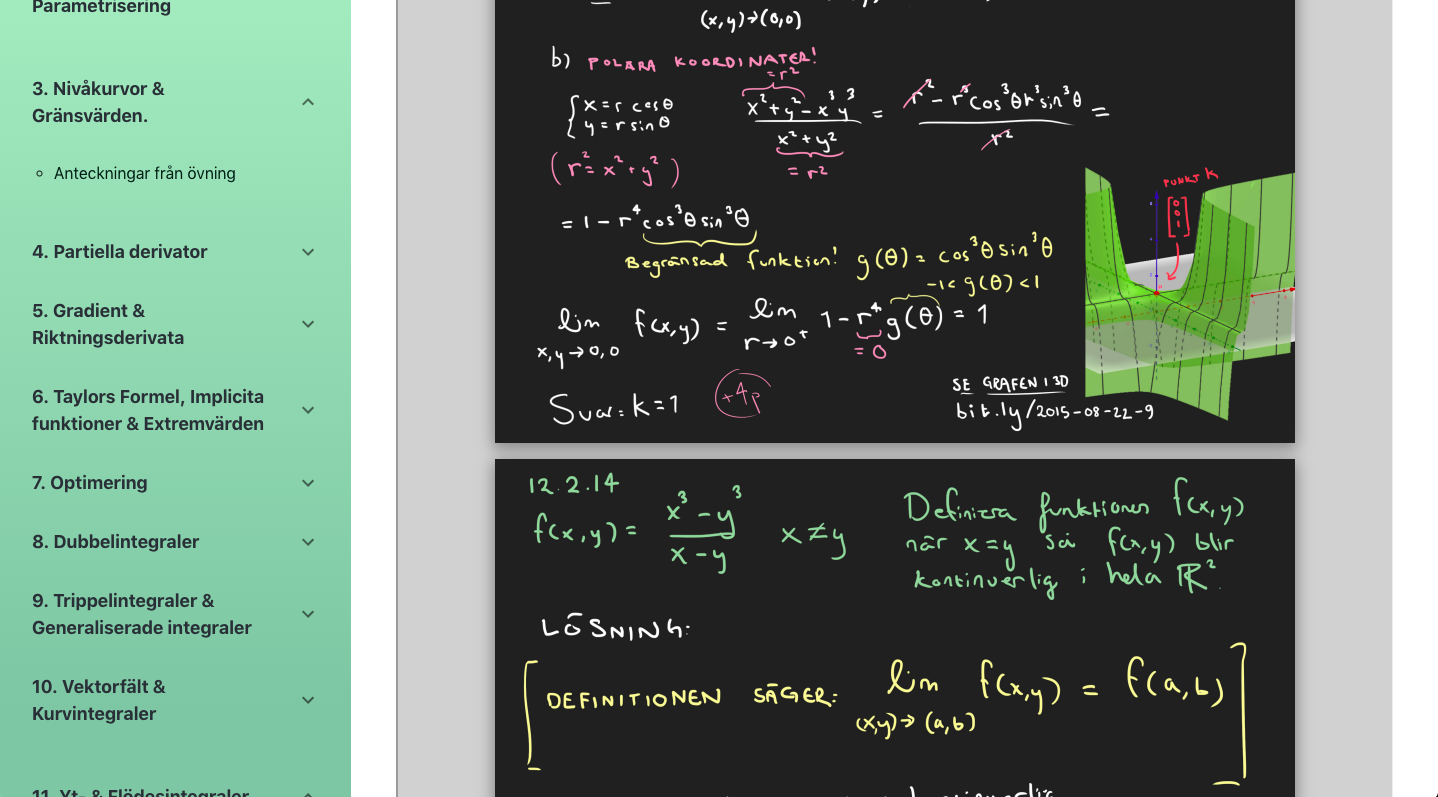 Parametrisering
3. Nivåkurvor &
Gränsvärden.
Anteckningar från övning
4. Partiella derivator
5. Gradient &
Riktningsderivata
6. Taylors Formel, Implicita
funktioner & Extremvärden
7. Optimering
8. Dubbelintegraler
9. Trippelintegraler &
Generaliserade integraler
10. Vektorfält &
Kurvintegraler
11. Yt- & Flödesintegraler
(x,y)→(0,0)
b) POLÄRA KOORDINATER!
= r²
{ x = r cos θ
y = r sin θ
(r² = x² + y²)
x² + y² - x³y³ / x² + y² = r² - r³cos³θ r³sin³θ / r² =
= r²
= 1 - r⁴ cos³θ sin³θ
Begränsad funktion! g(θ) = cos³θ sin³θ
-1 < g(θ) < 1
lim f(x,y) = lim 1 - r⁴ g(θ) = 1
x,y → 0,0 r → 0⁺ = 0
Svar: k = 1 +4p
PUNKT K
[0 0 1]
SE GRAFEN I 3D
bit.ly/2015-08-22-9
12.2.14
f(x,y) = x³ - y³ / x - y x ≠ y
Definiera funktionen f(x,y)
när x = y så f(x,y) blir
kontinuerlig i hela ℝ².
LÖSNING:
[DEFINITIONEN SÄGER: lim f(x,y) = f(a,b)]
(x,y) → (a,b)